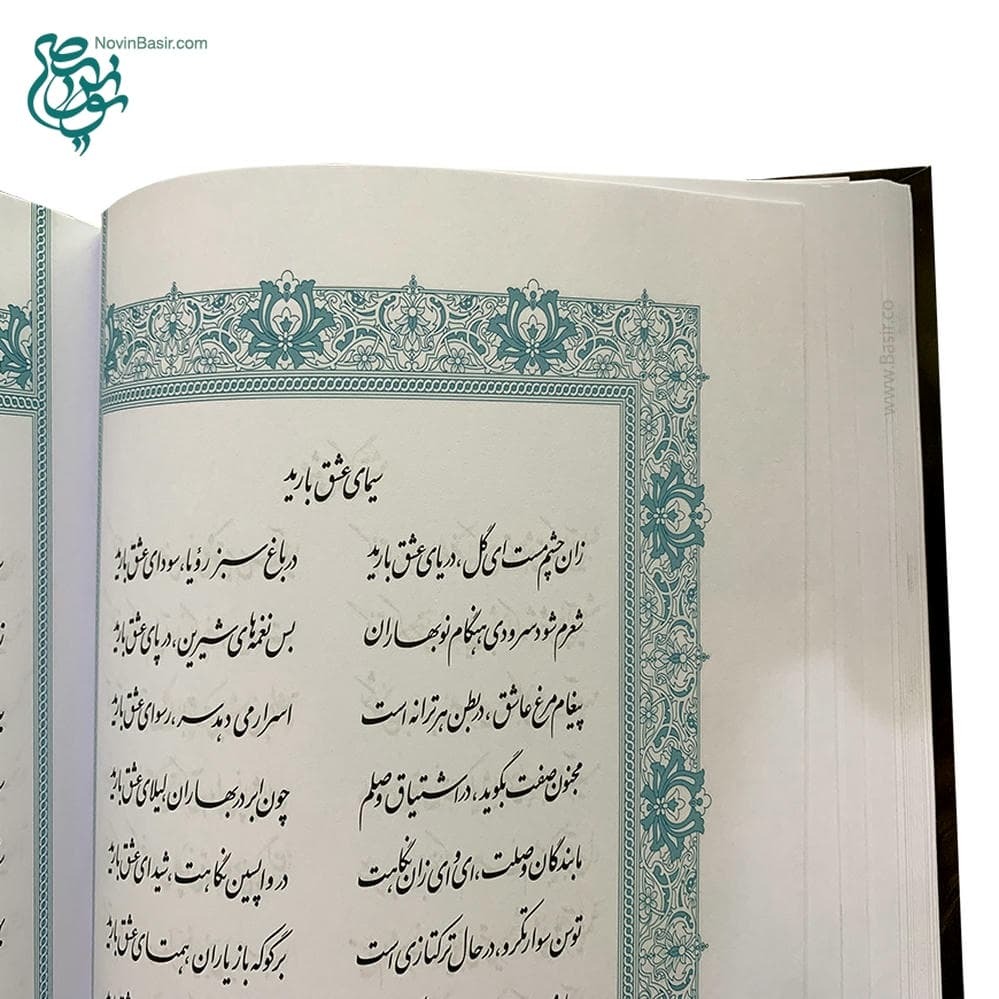 NovinBasir.com
www.Basir.co
سیمای عشق بارید
زان چشم مست ای گل، دریای عشق بارید در باغ سبز رؤیا، سودای عشق بارید
شعرم شود سرودی هنگام نوبهاران بس نغمه‌های شیرین، در پای عشق بارید
پیغام مرغ عاشق، در بطن هر ترانه است اسرار می دهد سر، رسوای عشق بارید
مجنون صفت بگوید، در اشتیاق وصلم چون ابر در بهاران لیلای عشق بارید
ما بندگان وصلت، ای وای زان نگاهت در واپسین نگاهت، شیدای عشق بارید
توسن سوار تکرو، در حال ترکتازی است برگو که باز یاران همتای عشق بارید